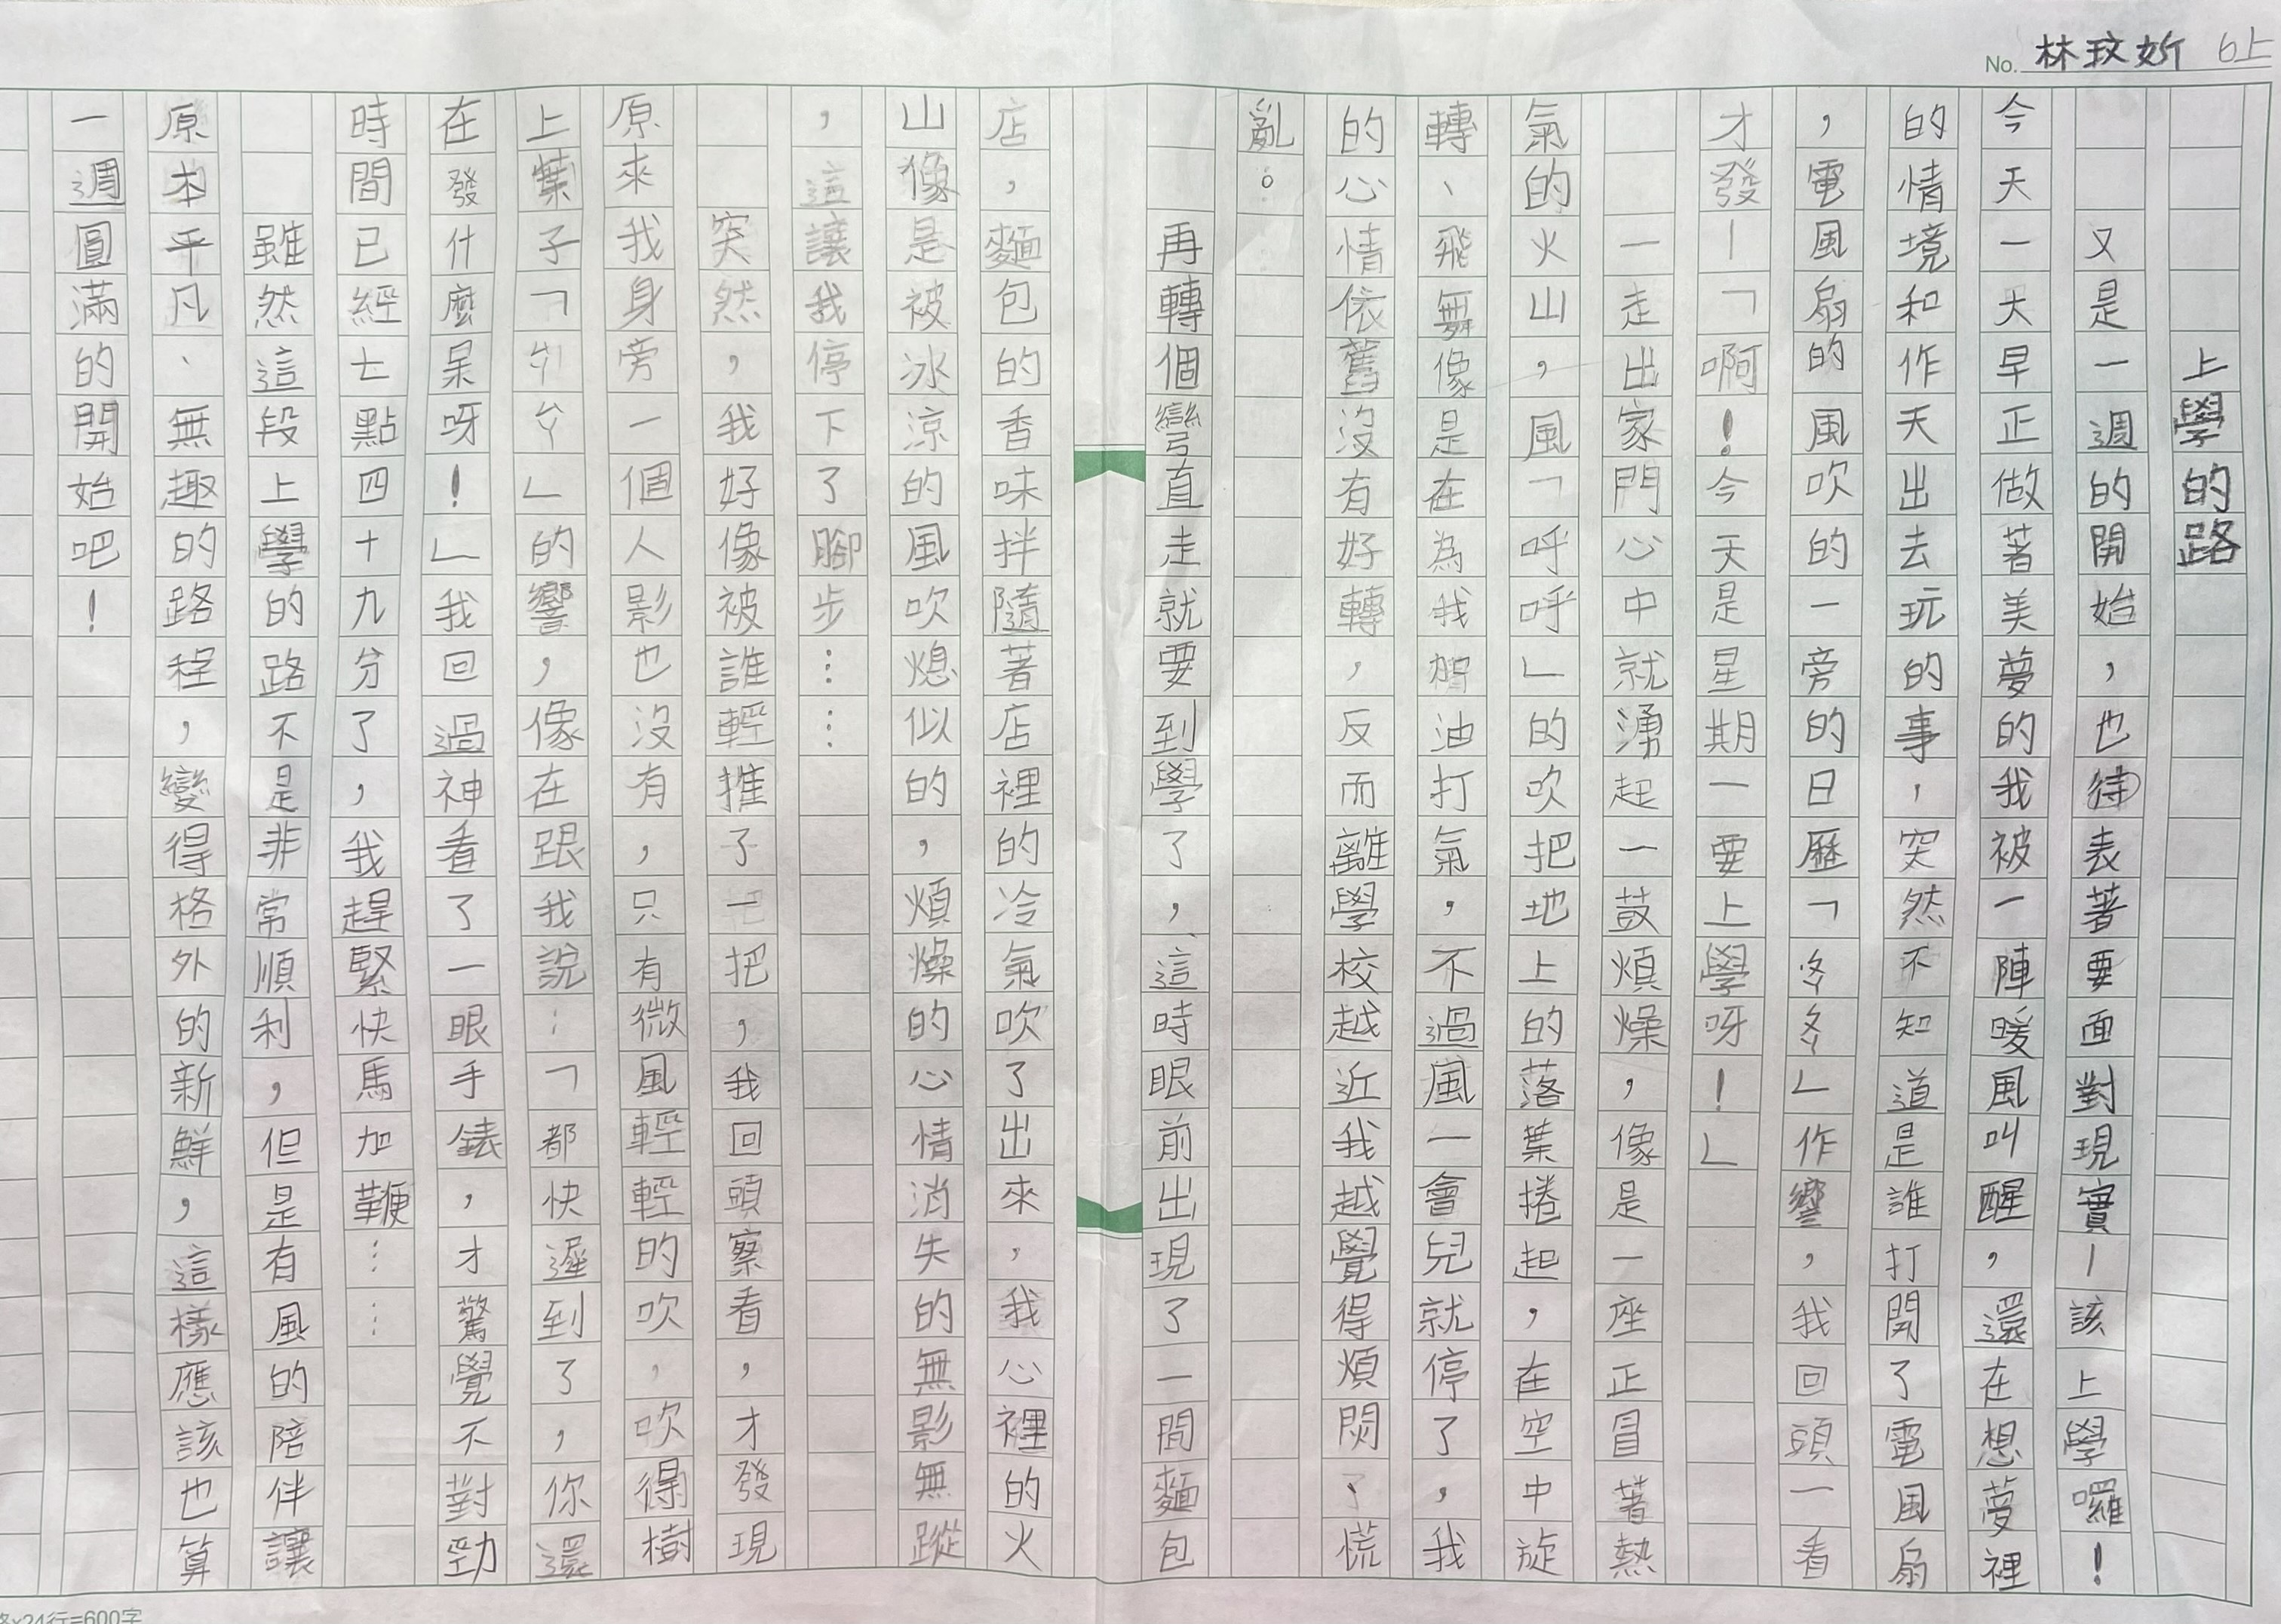 No. 林玟妡 6上
上學的路
又是一週的開始，也待表著要面對現實—該上學囉！
今天一大早正做著美夢的我被一陣暖風叫醒，還在想夢裡
的情境和作天出去玩的事，突然不知道是誰打開了電風扇
，電風扇的風吹的一旁的日歷「ㄆㄆㄚ」作響，我回頭一看
才發—「啊！今天是星期一要上學呀！」
一走出家門心中就湧起一鼓煩燥，像是一座正冒著熱
氣的火山，風「呼呼」的吹把地上的落葉捲起，在空中旋
轉、飛舞像是在為我加油打氣，不過風一會兒就停了，我
的心情依舊沒有好轉，反而離學校越近我越覺得煩悶、慌
亂。
再轉個彎直走就要到學了，這時眼前出現了一間麵包
店，麵包的香味拌隨著店裡的冷氣吹了出來，我心裡的火
山像是被冰涼的風吹熄似的，煩燥的心情消失的無影無蹤
，這讓我停下了腳步……
突然，我好像被誰輕推了一把，我回頭察看，才發現
原來我身旁一個人影也沒有，只有微風輕輕的吹，吹得樹
上葉子「ㄕㄚ」的響，像在跟我說：「都快遲到了，你還
在發什麼呆呀！」我回過神看了一眼手錶，才驚覺不對勁
時間已經七點四十九分了，我趕緊快馬加鞭……
雖然這段上學的路不是非常順利，但是有風的陪伴讓
原本平凡、無趣的路程，變得格外的新鮮，這樣應該也算
一週圓滿的開始吧！
24行=600字